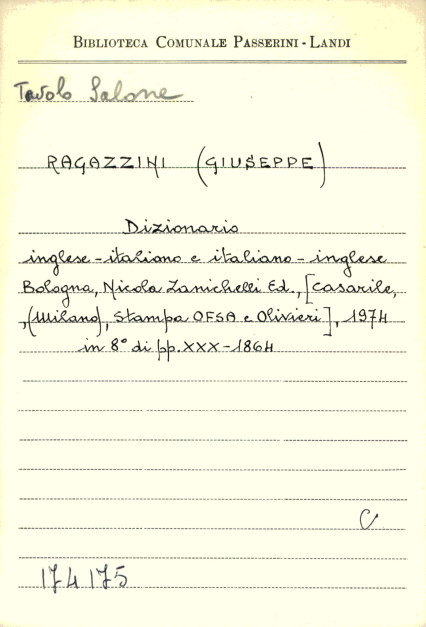 BIBLIOTECA COMUNALE PASSERINI - LANDI
Tavolo Salone
RAGAZZINI (GIUSEPPE)
Dizionario
inglese - italiano e italiano - inglese
Bologna, Nicola Zanichelli Ed., [Casarile,
,(Milano), Stampa OFSA e Olivieri], 1974
in 8° di pp. XXX - 1864
C
174175